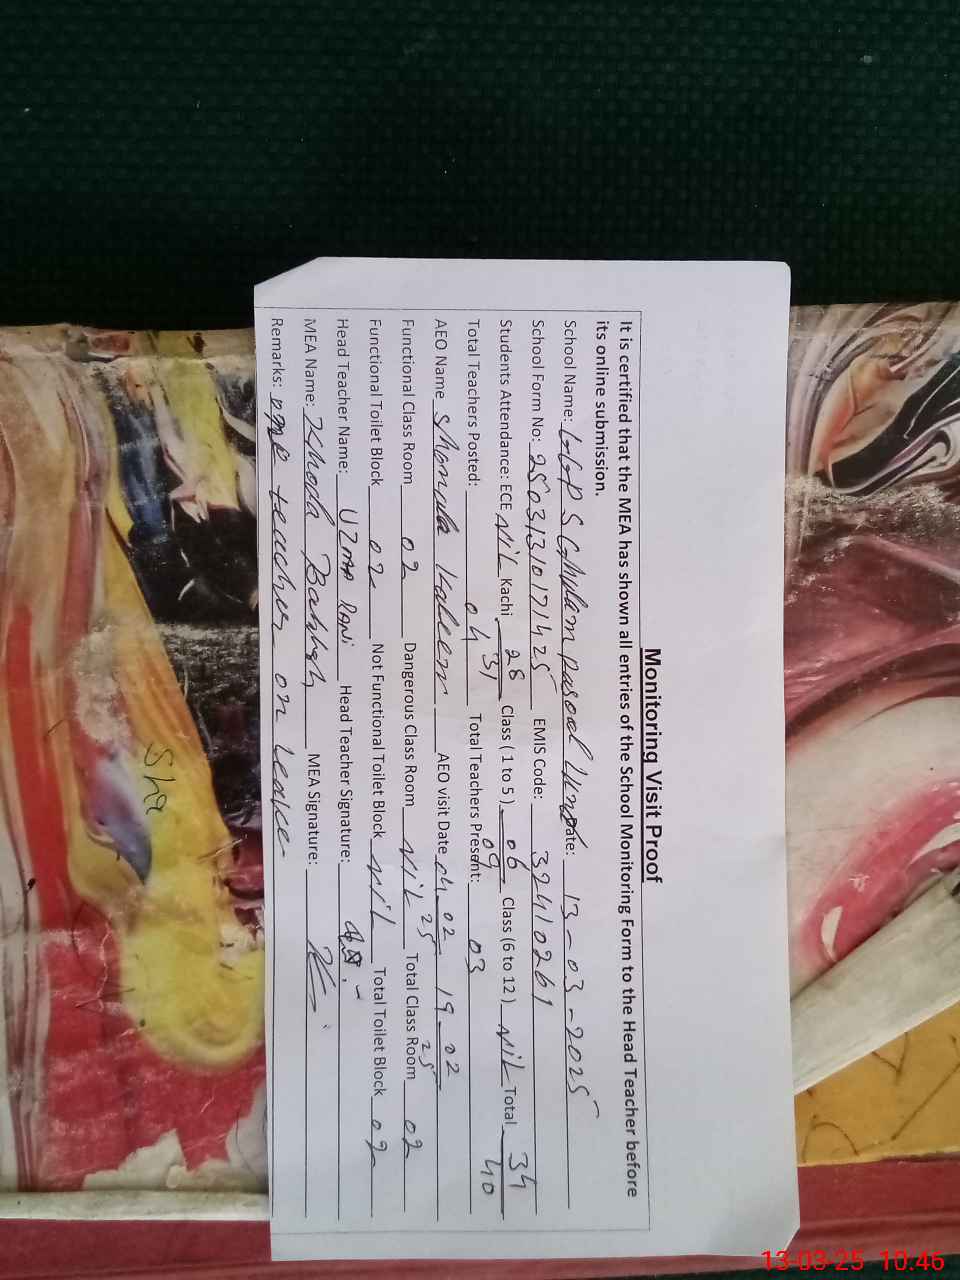 Monitoring Visit Proof
It is certified that the MEA has shown all entries of the School Monitoring Form to the Head Teacher before
its online submission.
School Name: GGPS Ghulam Date: 13-03-2025
School Form No: EMIS Code: 32410261
Students Attendance: ECE Nil Kachi 28/31 Class (1 to 5) 06/09 Class (6 to 12) Nil Total 34/40
Total Teachers Posted: 04 Total Teachers Present: 03
AEO Name Kaleem AEO visit Date 04-02-25 19-02-25
Functional Class Room 02 Dangerous Class Room Nil Total Class Room 02
Functional Toilet Block 02 Not Functional Toilet Block Nil Total Toilet Block 02
Head Teacher Name: Uzma Rani Head Teacher Signature:
MEA Name: Khoda Bakhsh MEA Signature:
Remarks: one teacher on leave
Sha
13-03-25 10:46